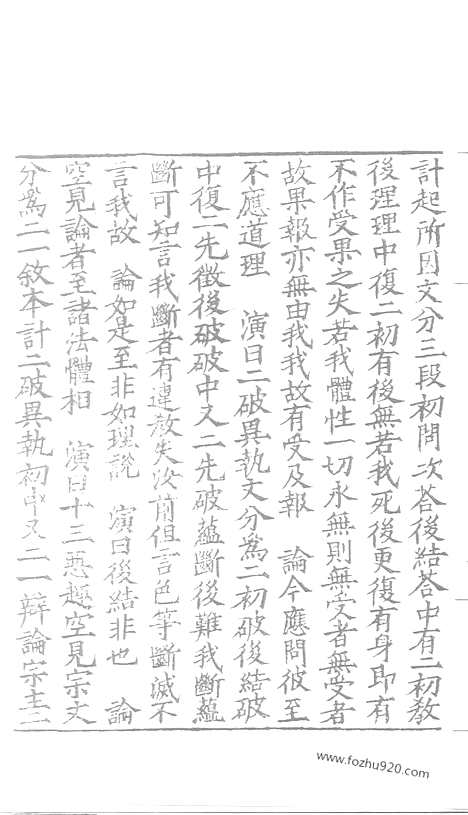 計起所因文分三段初問次荅後結荅中有二初敎
後理理中復二初有後無若我死後更復有身即有
不作受果之失若我體性一切永無則無受者無受者
故果報亦無由我我故有受及報　論今應問彼至
不應道理　演曰二破異執文分爲二初破後結破
中復二先徵後破破中又二先破蘊斷後難我斷蘊
斷可知言我斷者有違教失汝前但言色等斷滅不
言我故　論如是至非如理說　演曰後結非也　論
空見論者至諸法體相　演曰十三惡趣空見宗文
分爲二一敘本計二破異執初中又二一辯論宗主二
www.fozhu920.com